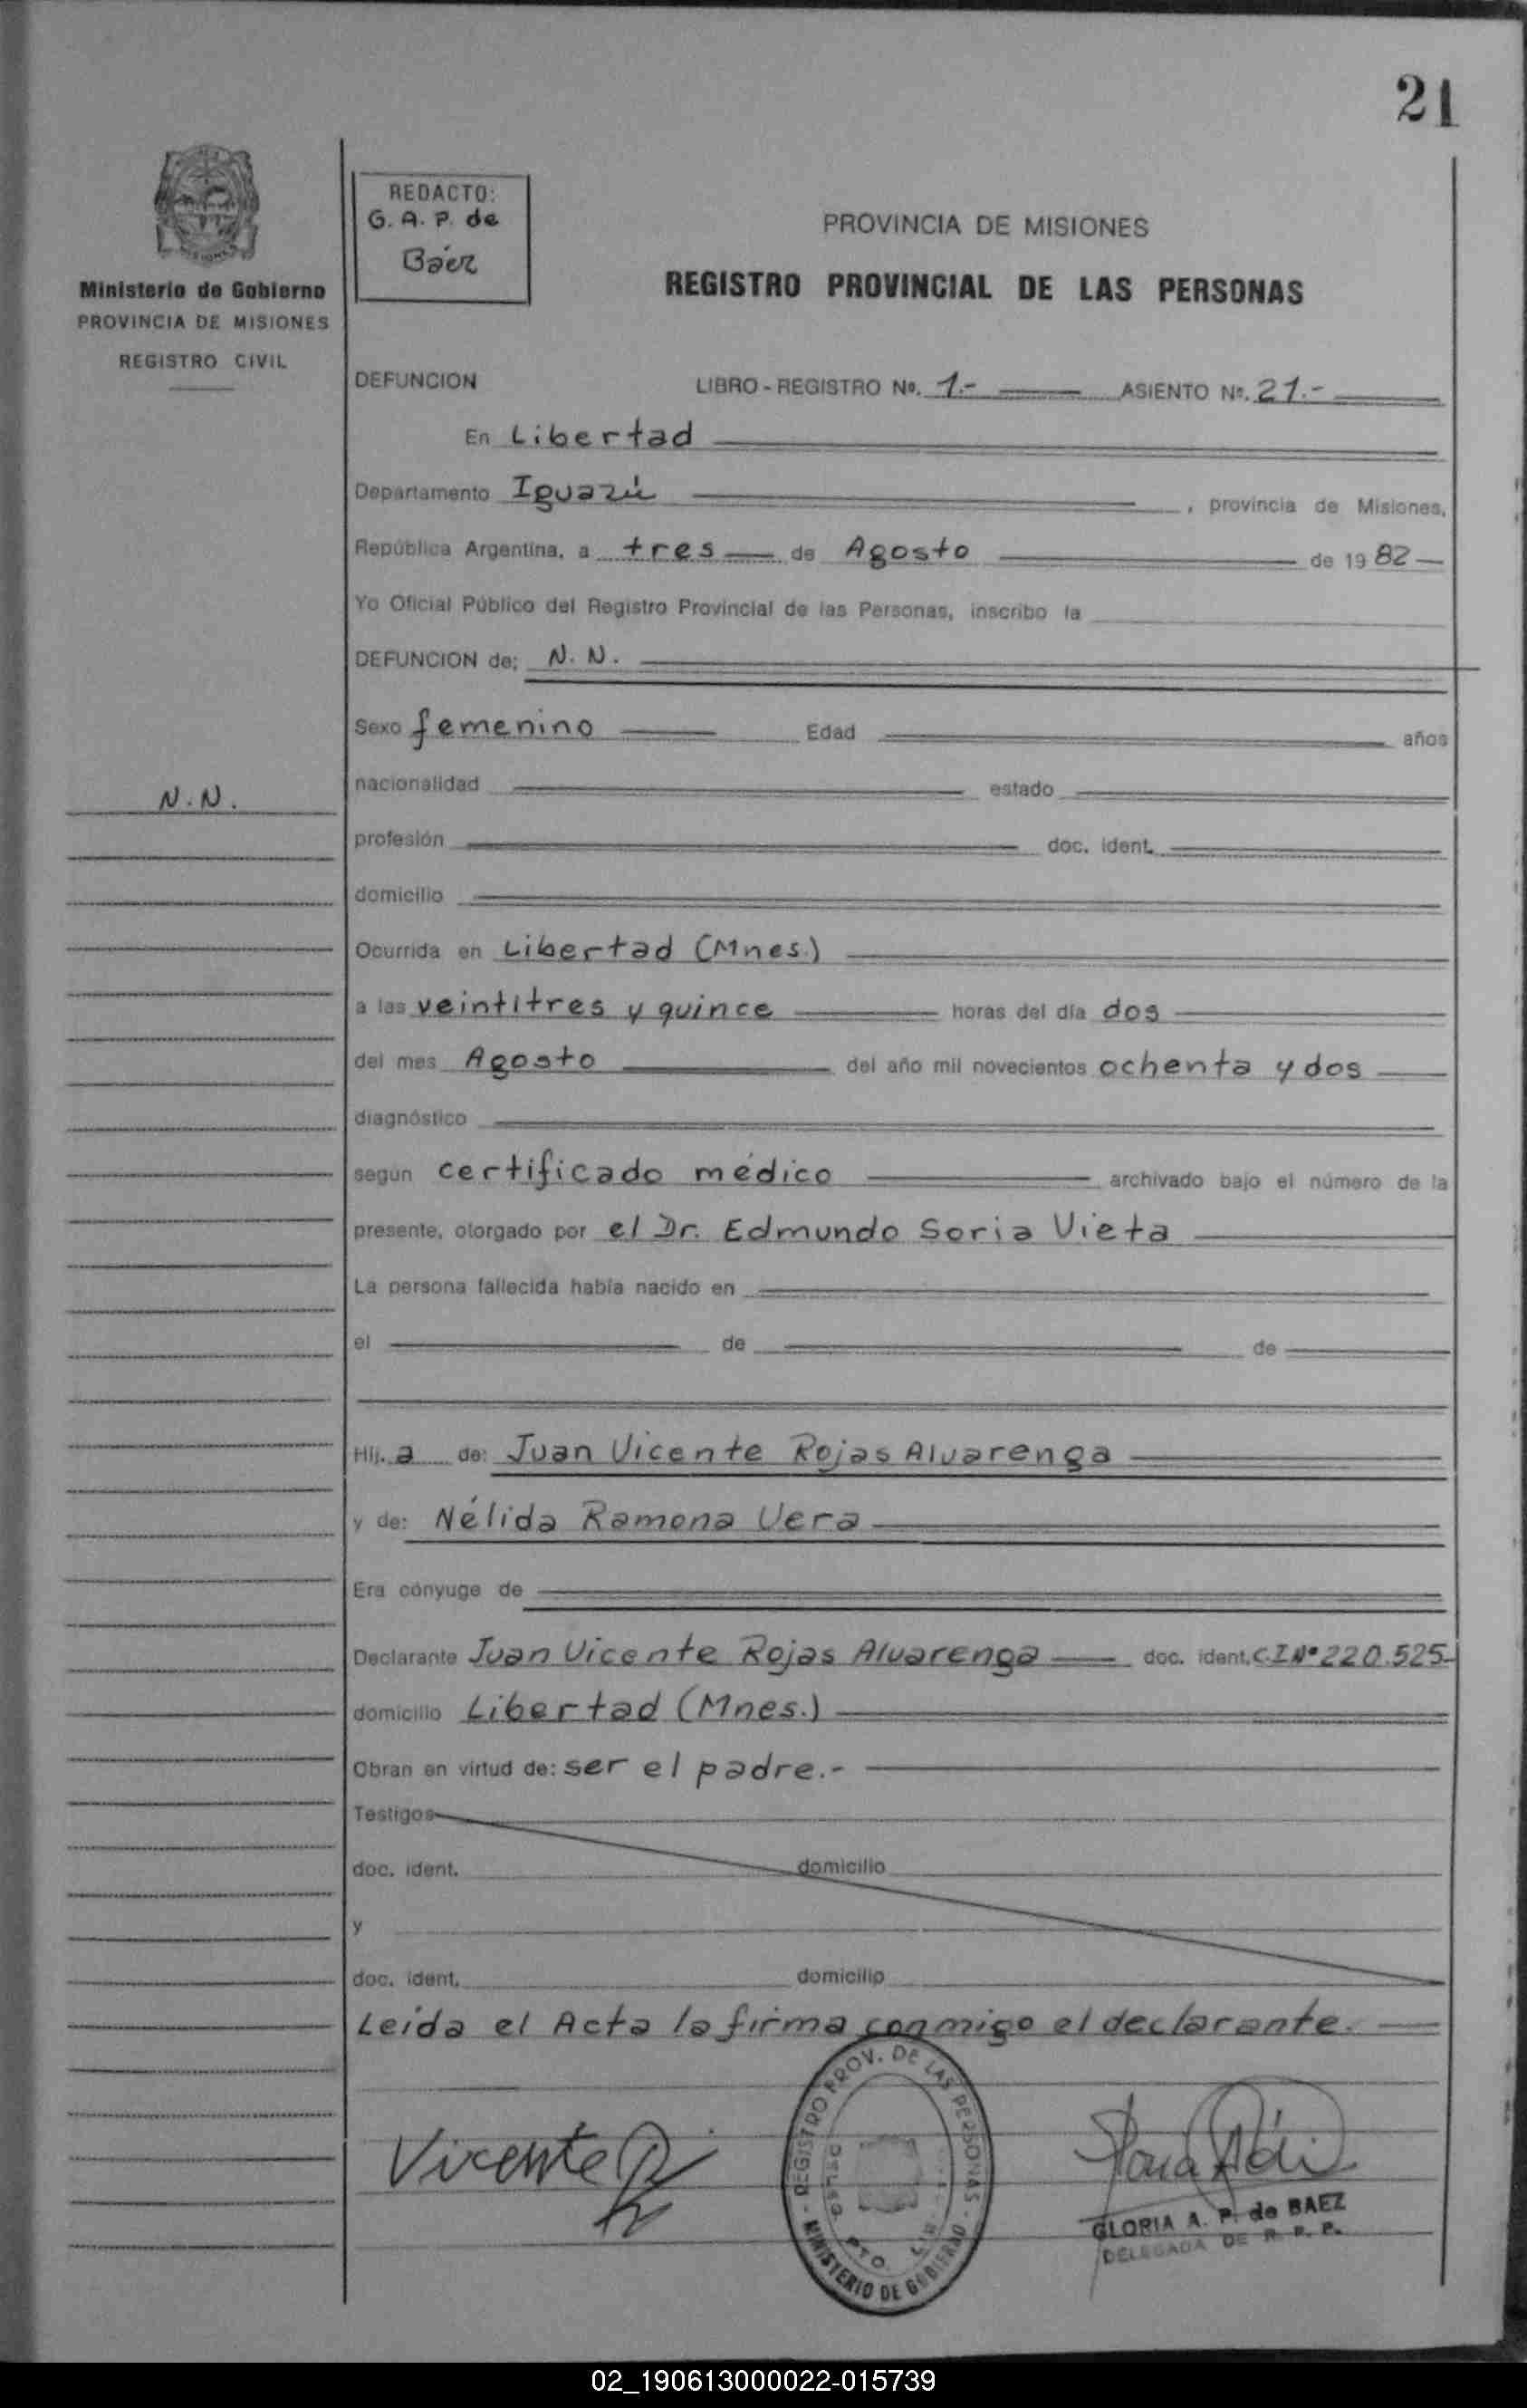 21
REDACTO:
G. A. P. de
Báez
PROVINCIA DE MISIONES
REGISTRO PROVINCIAL DE LAS PERSONAS
Ministerio de Gobierno
PROVINCIA DE MISIONES
REGISTRO CIVIL
DEFUNCION LIBRO - REGISTRO Nº. 1.- ASIENTO Nº. 21.-
En Libertad
Departamento Iguazú, provincia de Misiones,
República Argentina, a tres de Agosto de 1982
Yo Oficial Público del Registro Provincial de las Personas, inscribo la
DEFUNCION de; N. N.
Sexo femenino Edad años
N. N.
nacionalidad estado
profesión doc. ident.
domicilio
Ocurrida en Libertad (Mnes.)
a las veintitres y quince horas del día dos
del mes Agosto del año mil novecientos ochenta y dos
diagnóstico
según certificado médico archivado bajo el número de la
presente, otorgado por el Dr. Edmundo Soria Vieta
La persona fallecida había nacido en
el de de
Hij. a de: Juan Vicente Rojas Alvarenga
y de: Nélida Ramona Vera
Era cónyuge de
Declarante Juan Vicente Rojas Alvarenga doc. ident. C.I Nº 220.525-
domicilio Libertad (Mnes.)
Obran en virtud de: ser el padre.-
Testigos
doc. ident. domicilio
y
doc. ident. domicilio
Leída el Acta la firma conmigo el declarante.
REGISTRO PROV. DE LAS PERSONAS - MINISTERIO DE GOBIERNO -
Vicente R
GLORIA A. P. de BAEZ
DELEGADA DE R. P. P.
02_190613000022-015739